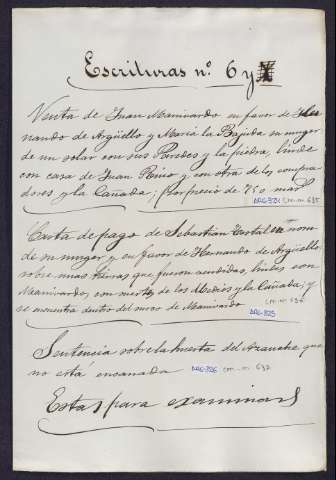 Escrituras nº 6 y
Venta de Juan Manivardo en favor de Her
nando de Argüello y María la Bajuda su muger
de un solar con sus Paredes y la piedra, linde
con casa de Juan Rino y con otra de los compra
dores y la Cañada; por precio de 750 mars
Carta de pago de Sebastián en nom
de su muger y en favor de Hernando de Argüello
sobre unas tierras que fueron vendidas, lindes con
Manivardo, con suertes de los Medios y la Cañada; y
se encuentra dentro del muro de Manivardo
Sentencia sobre la huerta del Arauche que
no está ensanada
Estas para examinar